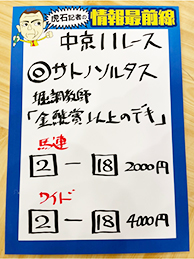 虎石記者の
情報最前線
中京11レース
◎サトノソルタス
堀調教師
「金鯱賞以上のデキ」
馬連
2－18 2000円
ワイド
2－18 4000円